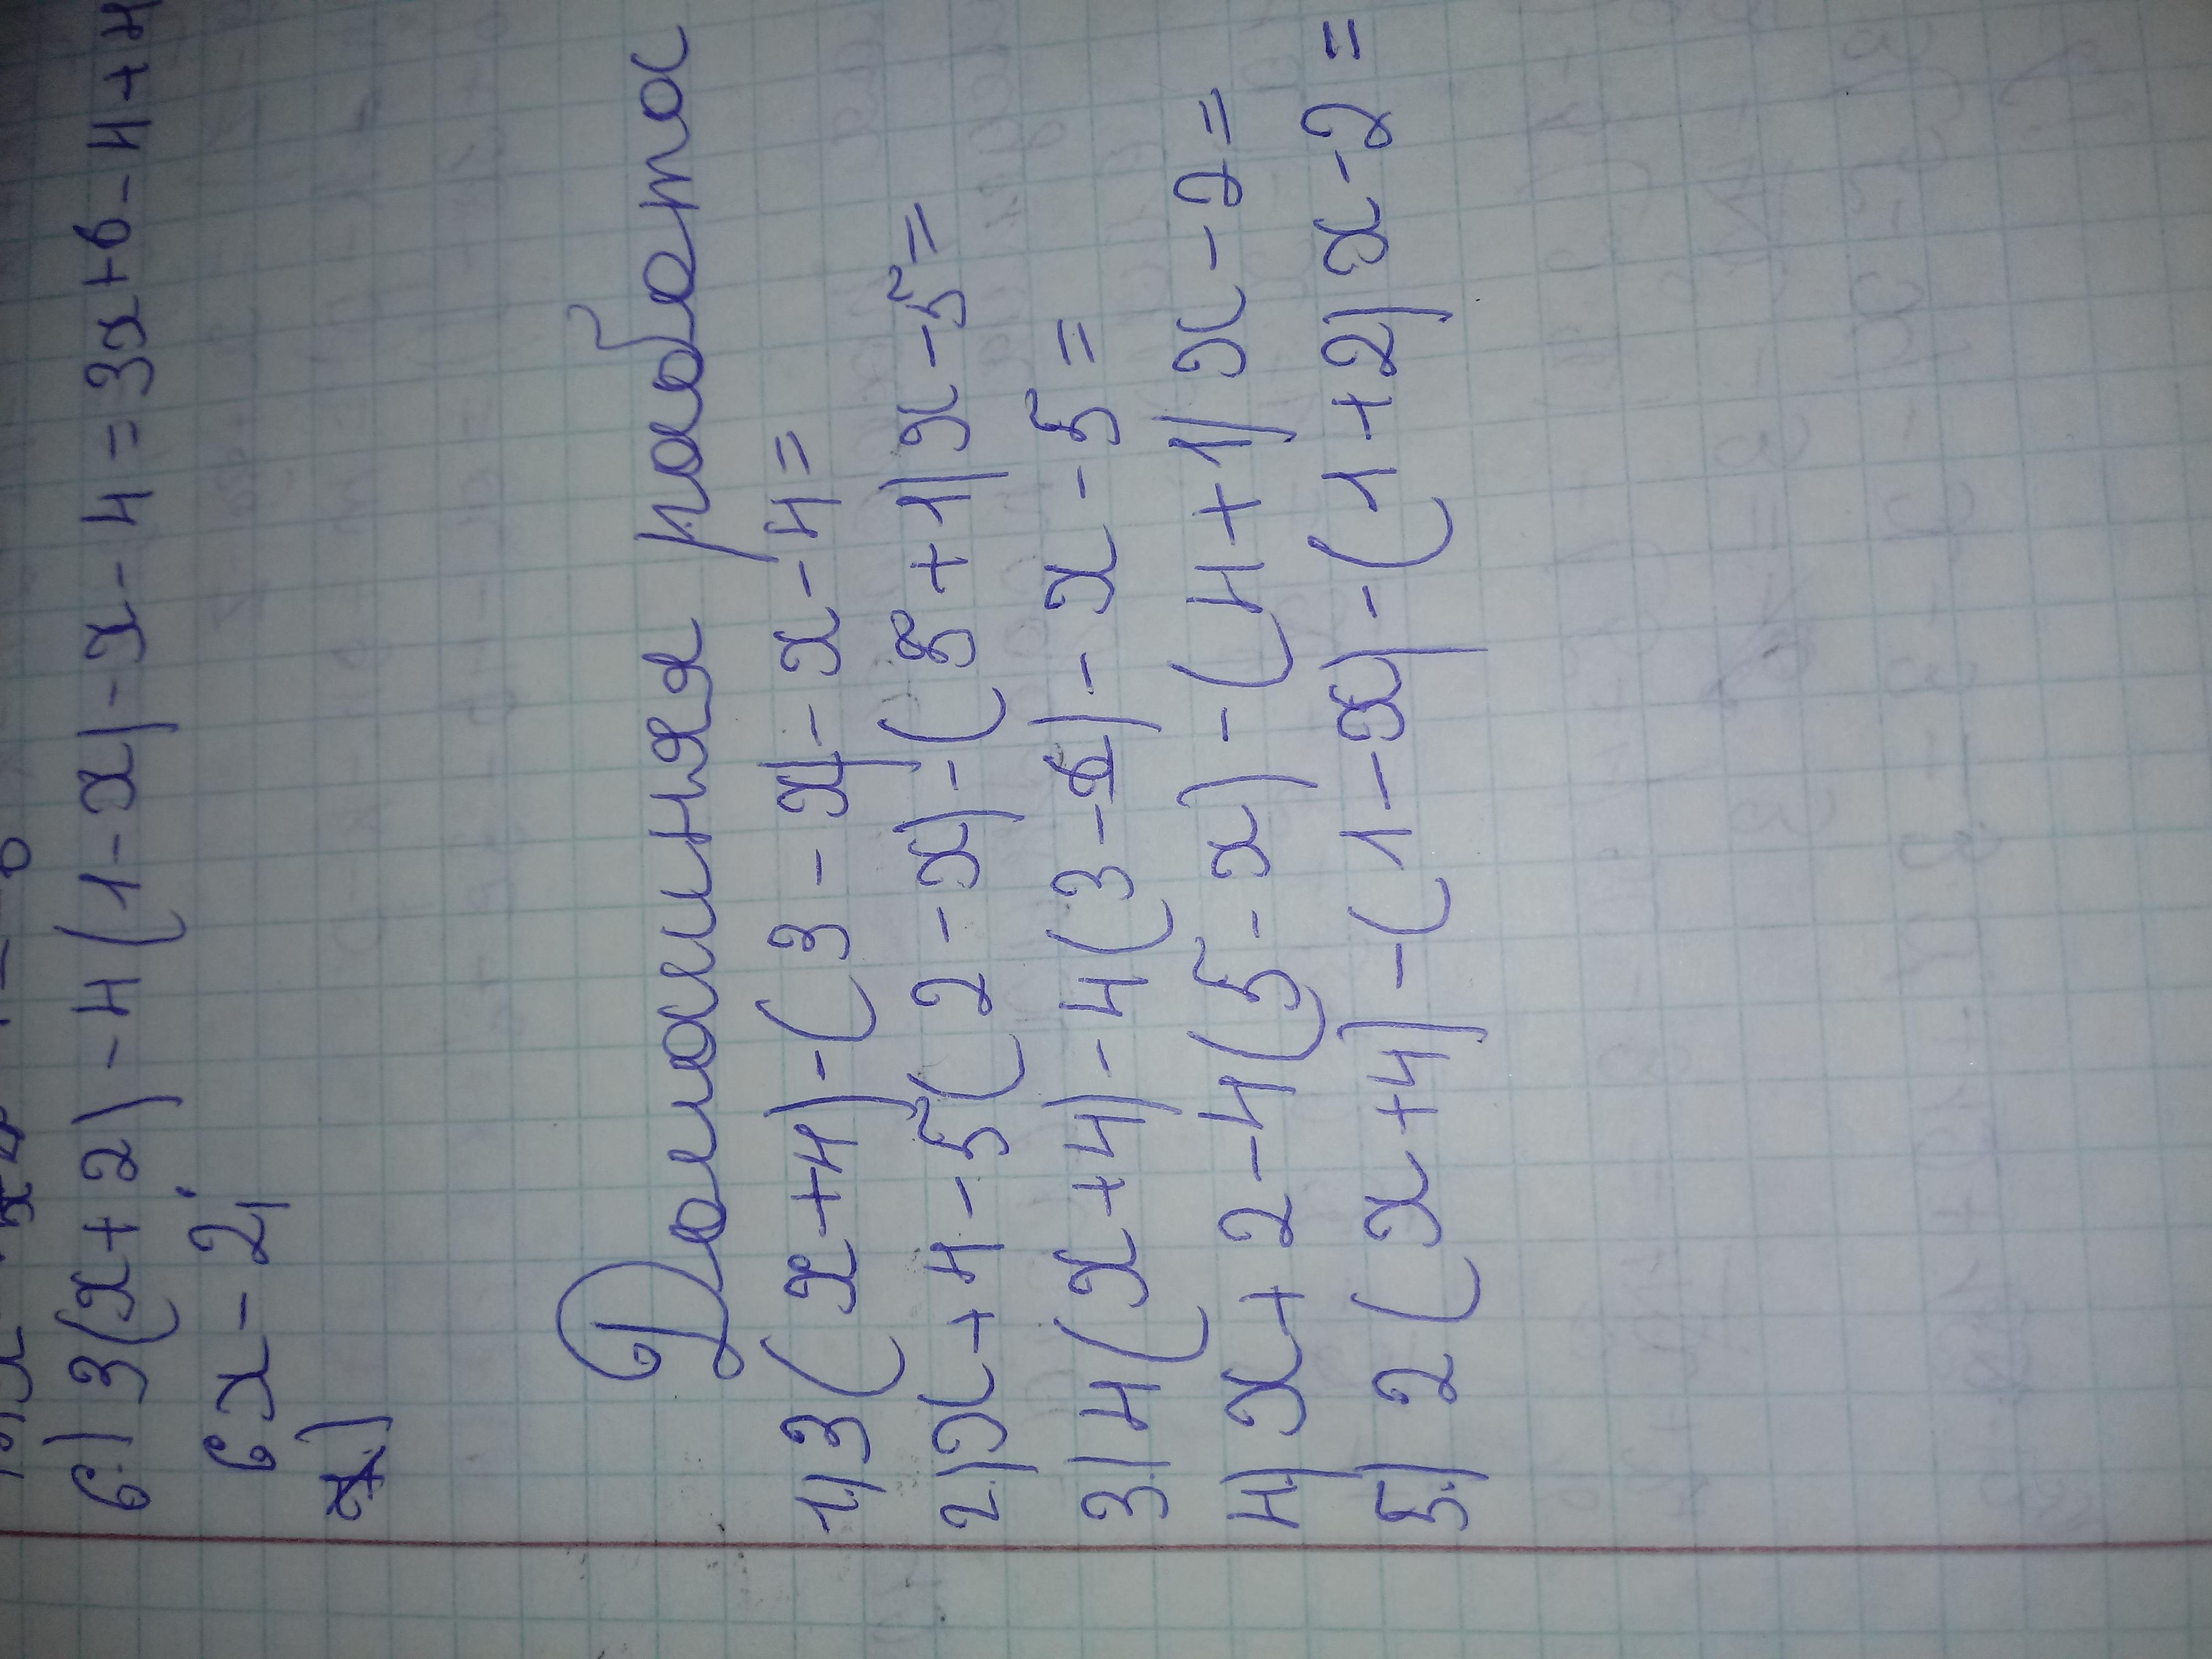 6.) 3(x+2)-4(1-x)-x-4=3x+6-4+4
6x-2;
Домашняя работа
1.) 3(x+4)-(3-x)-x-4=
2.) x+4-5(2-x)-( +1)x-5=
3.) 4(x+4)-4(3- )-x-5=
4.) x+2-4(5-x)-(4+1)x-2=
5.) 2(x+4)-(1-x)-(1+2)x-2=